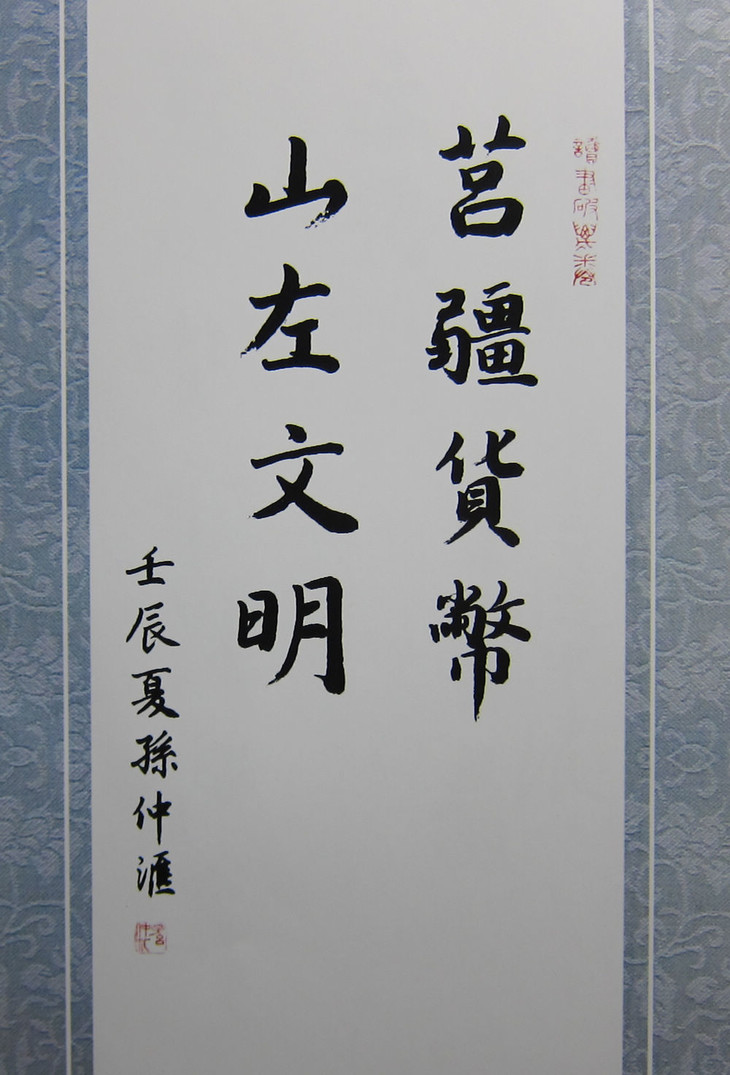 莒疆貨幣
山左文明
壬辰夏孫仲滙